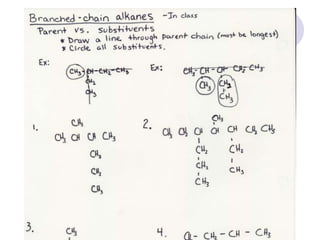 Branched-chain alkanes -In class
Parent vs. Substituents
* Draw a line through parent chain (must be longest)
* Circle all substituents.
Ex: CH3-CH-CH2-CH3
CH2
CH3
Ex: CH3-CH-CH-CH2-CH3
CH3 CH2
CH3
1. CH3
CH3 CH CH CH3
CH2
CH2
CH3
2. CH3
CH3 CH2 CH CH CH CH2 CH3
CH2 CH2
CH2 CH3
CH3
3. CH3
4. CH2-CH-CH3